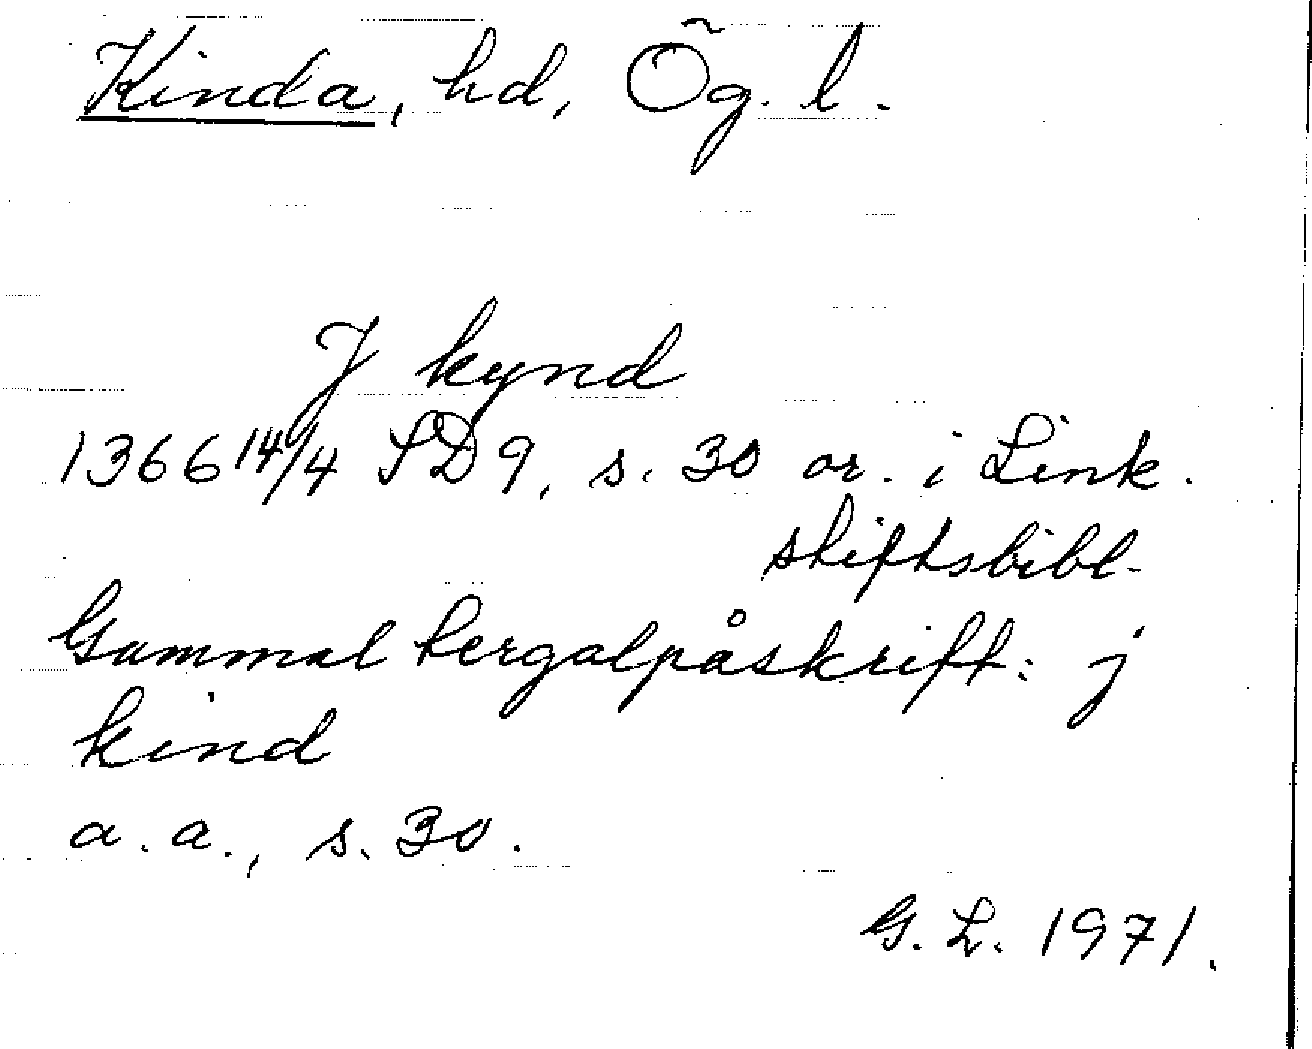 Kinda, hd, Ög. l.
J kynd
1366 14/4 SD 9, s. 30 or. i Link.
stiftsbibl.
Gammal pergalpåskrift: j
kind
a. a., s. 30.
G. L. 1971.